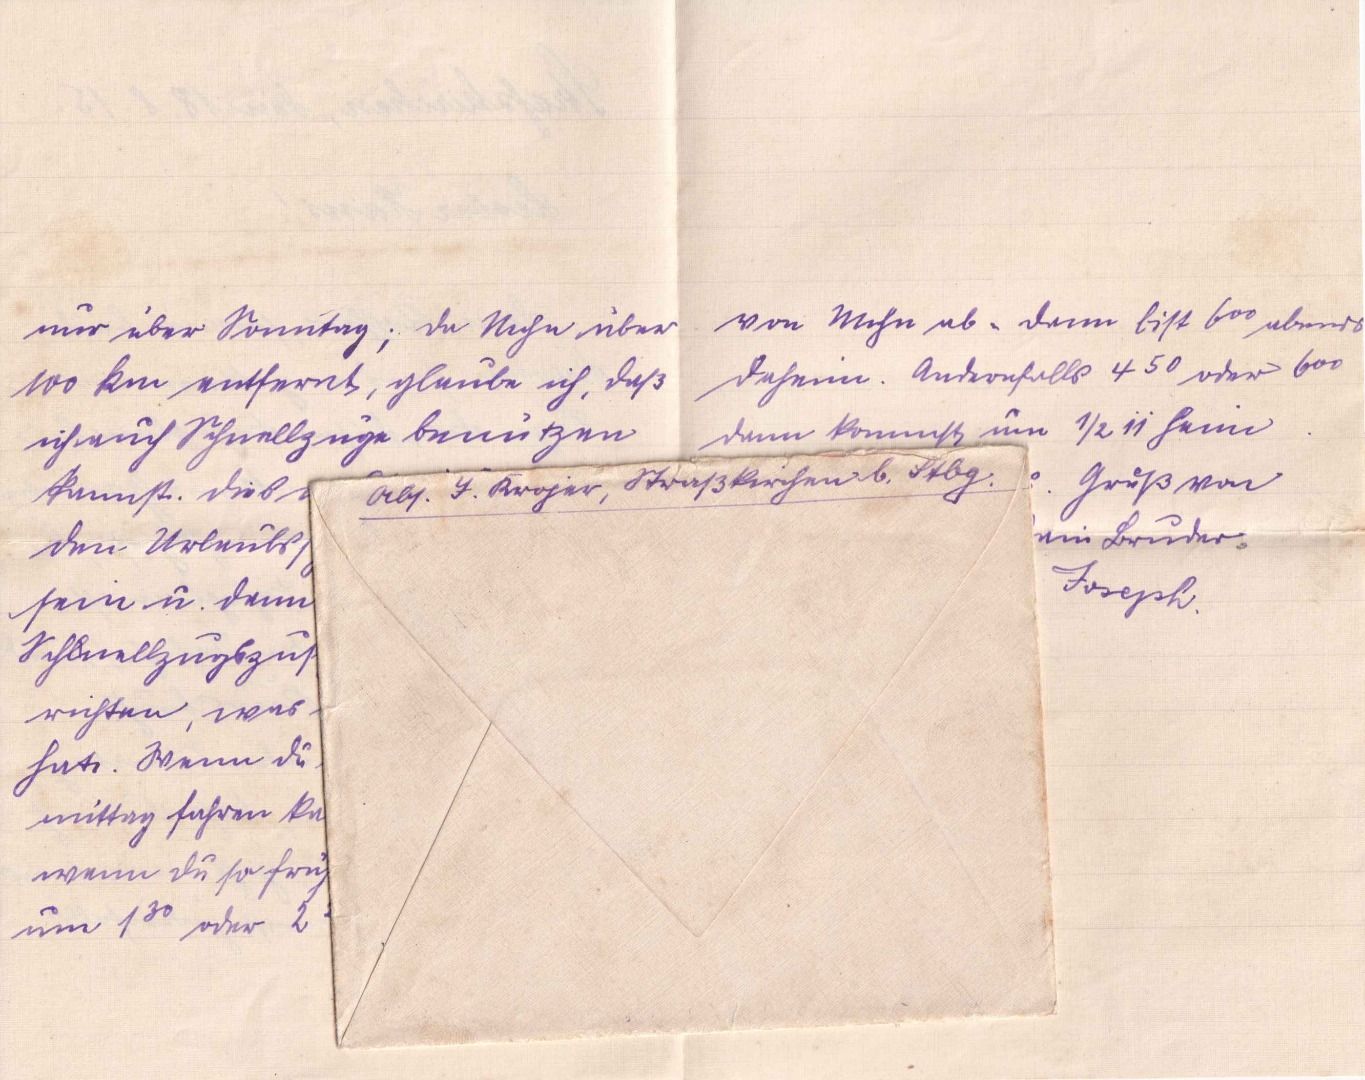 nur über Sonntag; da Mchn über
100 km entfernt, glaube ich, daß
ich auch Schnellzüge benützen
kannst. Dies
den Urlaubs
sein u. dann
Schnellzugszus
richten, was
hat. Wenn du
mittag fahren ka
wenn du so früh
um 1³⁰ oder 2
von Mchn ab. dann bist 6⁰⁰ abends
daheim. Andernfalls 4⁵⁰ oder 6⁰⁰
dann kommst um 1/2 11 heim.
Gruß von
ein Bruder
Joseph.
Abs. J. Krojer, Straßkirchen b. Stbg.